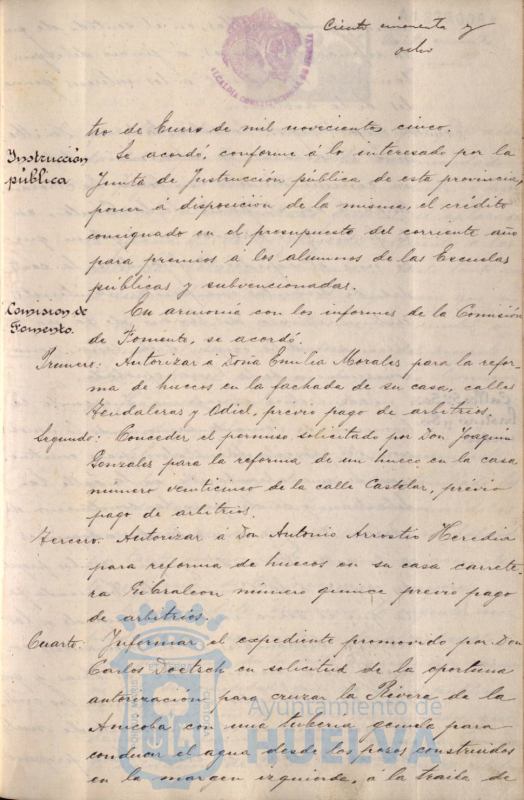 Ciento cincuenta y
ocho
ALCALDIA CONSTITUCIONAL DE HUELVA
tro de Enero de mil novecientos cinco.
Instrucción
pública
Se acordó, conforme á lo interesado por la
Junta de Instrucción pública de esta provincia,
poner á disposición de la misma, el crédito
consignado en el presupuesto del corriente año
para premios á los alumnos de las Escuelas
públicas y subvencionadas.
Comision de
Fomento.
En armonia con los informes de la Comisión
de Fomento, se acordó.
Primero: Autorizar á Doña Emilia Morales para la refor-
ma de huecos en la fachada de su casa, calles
Tendaleras y Odiel, previo pago de arbitrios.
Segundo: Conceder el permiso solicitado por Don Joaquin
Gonzales para la reforma de un hueco en la casa
número venticinco de la calle Castelar, prévio
pago de arbitrios.
Tercero. Autorizar á Don Antonio Arrostio Heredia
para reforma de huecos en su casa carrete-
ra Gibraleon número quince previo pago
de arbitrios.
Cuarto. Informar el expediente promovido por Don
Carlos Doetsch en solicitud de la oportuna
autorización para cruzar la Rivera de la
Anicoba con una tuberia gemela para
conducir el agua desde los pozos construidos
en la margen izquierda, á la traida de
Ayuntamiento de
HUELVA